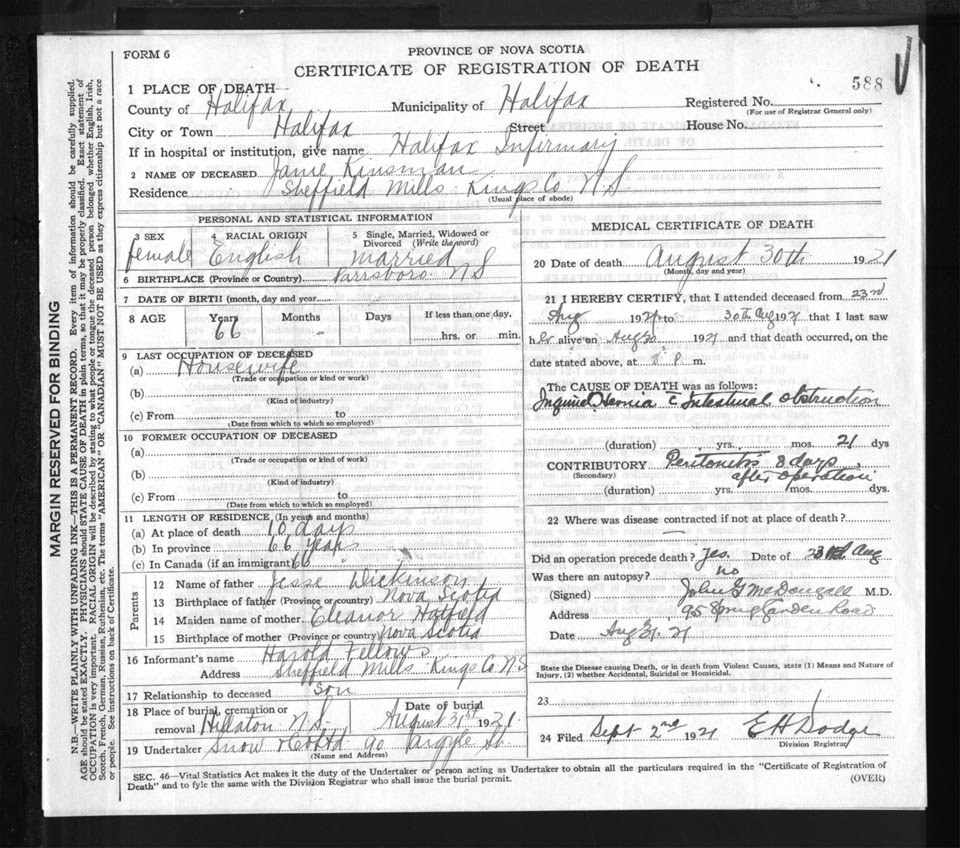 FORM 6
PROVINCE OF NOVA SCOTIA
CERTIFICATE OF REGISTRATION OF DEATH
588
1 PLACE OF DEATH
County of Halifax Municipality of Halifax Registered No.
(For use of Registrar General only)
City or Town Halifax Street House No.
If in hospital or institution, give name Halifax Infirmary
2 NAME OF DECEASED Janie Kinsman
Residence Sheffield Mills Kings Co N S
(Usual place of abode)
PERSONAL AND STATISTICAL INFORMATION
3 SEX female
4 RACIAL ORIGIN English
5 Single, Married, Widowed or Divorced (Write the word) married
6 BIRTHPLACE (Province or Country) Parrsboro N S
7 DATE OF BIRTH (month, day and year)
8 AGE Years Months Days If less than one day,
66 - hrs. or min.
9 LAST OCCUPATION OF DECEASED
(a) Housewife
(Trade or occupation or kind or work)
(b)
(Kind of industry)
(c) From to
(Date from which to which so employed)
10 FORMER OCCUPATION OF DECEASED
(a)
(Trade or occupation or kind of work)
(b)
(Kind of industry)
(c) From to
(Date from which to which so employed)
11 LENGTH OF RESIDENCE (In years and months)
(a) At place of death 10 days
(b) In province 66 years
(c) In Canada (if an immigrant) 66
Parents
12 Name of father Jesse Dickinson
13 Birthplace of father (Province or country) Nova Scotia
14 Maiden name of mother Eleanor Hatfield
15 Birthplace of mother (Province or country) Nova Scotia
16 Informant's name Harold Fellows
Address Sheffield Mills Kings Co N.S
17 Relationship to deceased Son
18 Place of burial, cremation or removal Hillaton N.S. Date of burial August 31st 1921
19 Undertaker Snow & Co Ltd 90 Argyle St.
(Name and Address)
MEDICAL CERTIFICATE OF DEATH
20 Date of death August 30th 1921
(Month, day and year)
21 I HEREBY CERTIFY, that I attended deceased from 23rd
Aug 1921 to 30th Aug 1921 that I last saw
her alive on Aug 30 1921 and that death occurred, on the
date stated above, at P. m.
The CAUSE OF DEATH was as follows:
Inguinal Hernia c Intestinal obstruction
(duration) yrs. mos. 21 dys
CONTRIBUTORY Peritonitis 8 days
(Secondary) after operation
(duration) yrs. mos. dys.
22 Where was disease contracted if not at place of death?
Did an operation precede death? Yes. Date of 23rd Aug
Was there an autopsy? no
(Signed) John G McDougall M.D.
Address 95 Spring Garden Road
Date Aug 31. 21
State the Disease causing Death, or in death from Violent Causes, state (1) Means and Nature of
Injury, (2) whether Accidental, Suicidal or Homicidal.
23
24 Filed Sept 2nd 1921 E H Dodge
Division Registrar
SEC. 46—Vital Statistics Act makes it the duty of the Undertaker or person acting as Undertaker to obtain all the particulars required in the "Certificate of Registration of
Death" and to fyle the same with the Division Registrar who shall issue the burial permit.
(OVER)
MARGIN RESERVED FOR BINDING
N.B.—WRITE PLAINLY WITH UNFADING INK—THIS IS A PERMANENT RECORD. Every item of information should be carefully supplied.
AGE should be stated EXACTLY. PHYSICIANS should STATE CAUSE OF DEATH in plain terms, so that it may be properly classified. Exact statement of
OCCUPATION is very important. RACIAL ORIGIN will be described by stating to what people or tongue the deceased person belonged whether English, Irish,
Scotch, French, German, Russian, Ruthenian, etc. The terms "AMERICAN" OR "CANADIAN" MUST NOT BE USED as they express citizenship but not a race
or people. See instructions on back of Certificate.